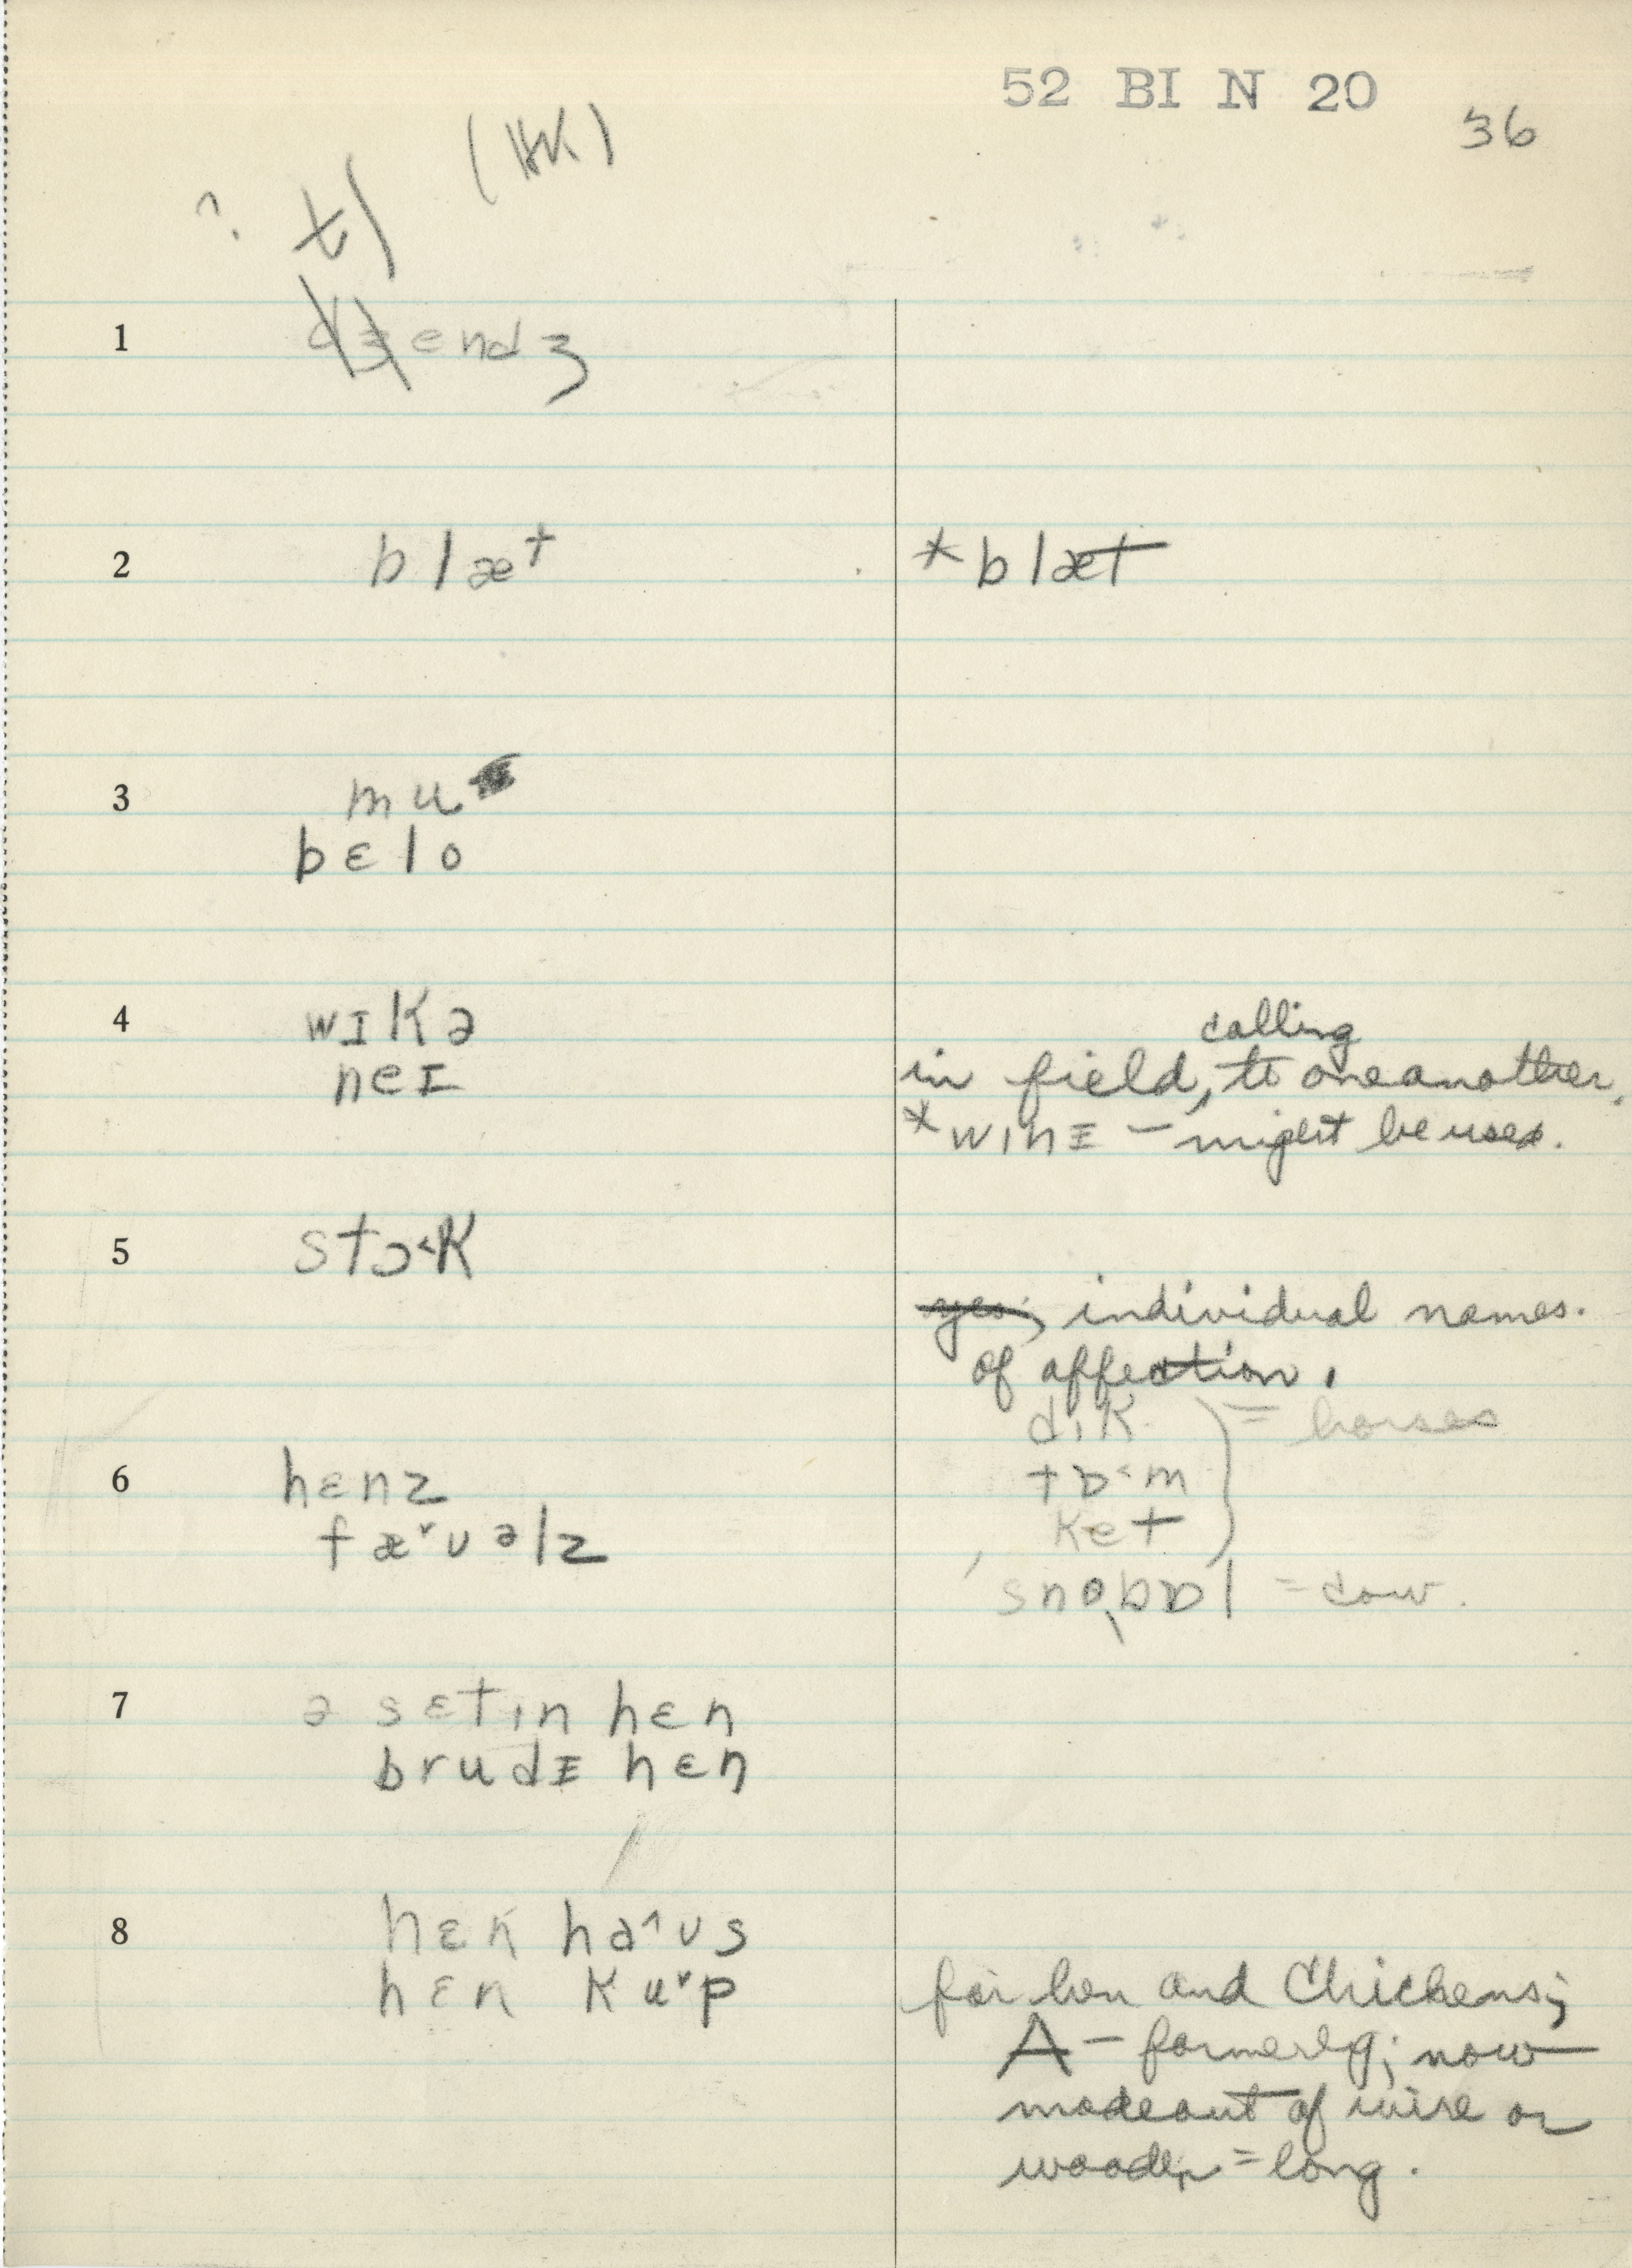 52 BI N 20
36
(HK)
? tʃ
1 dʒendʒ
2 blæt *blæt
3 mu
bɛlo
4 wɪkə calling
neɪ in field, to one another,
*wɪnɪ – might be used.
5 stɔ˂k
yes; individual names.
of affection.
dɪk = horses
6 hɛnz tɒ˂m
fæ˅ʊəlz ket
ˈsnoˌbɒl = cow.
7 ə sɛtɪn hɛn
brudɪ hɛn
8 hɛn hə˄ʊs
hɛn ku˅p for hen and chickens;
A – formerly; now
made out of wire or
wooden = long.